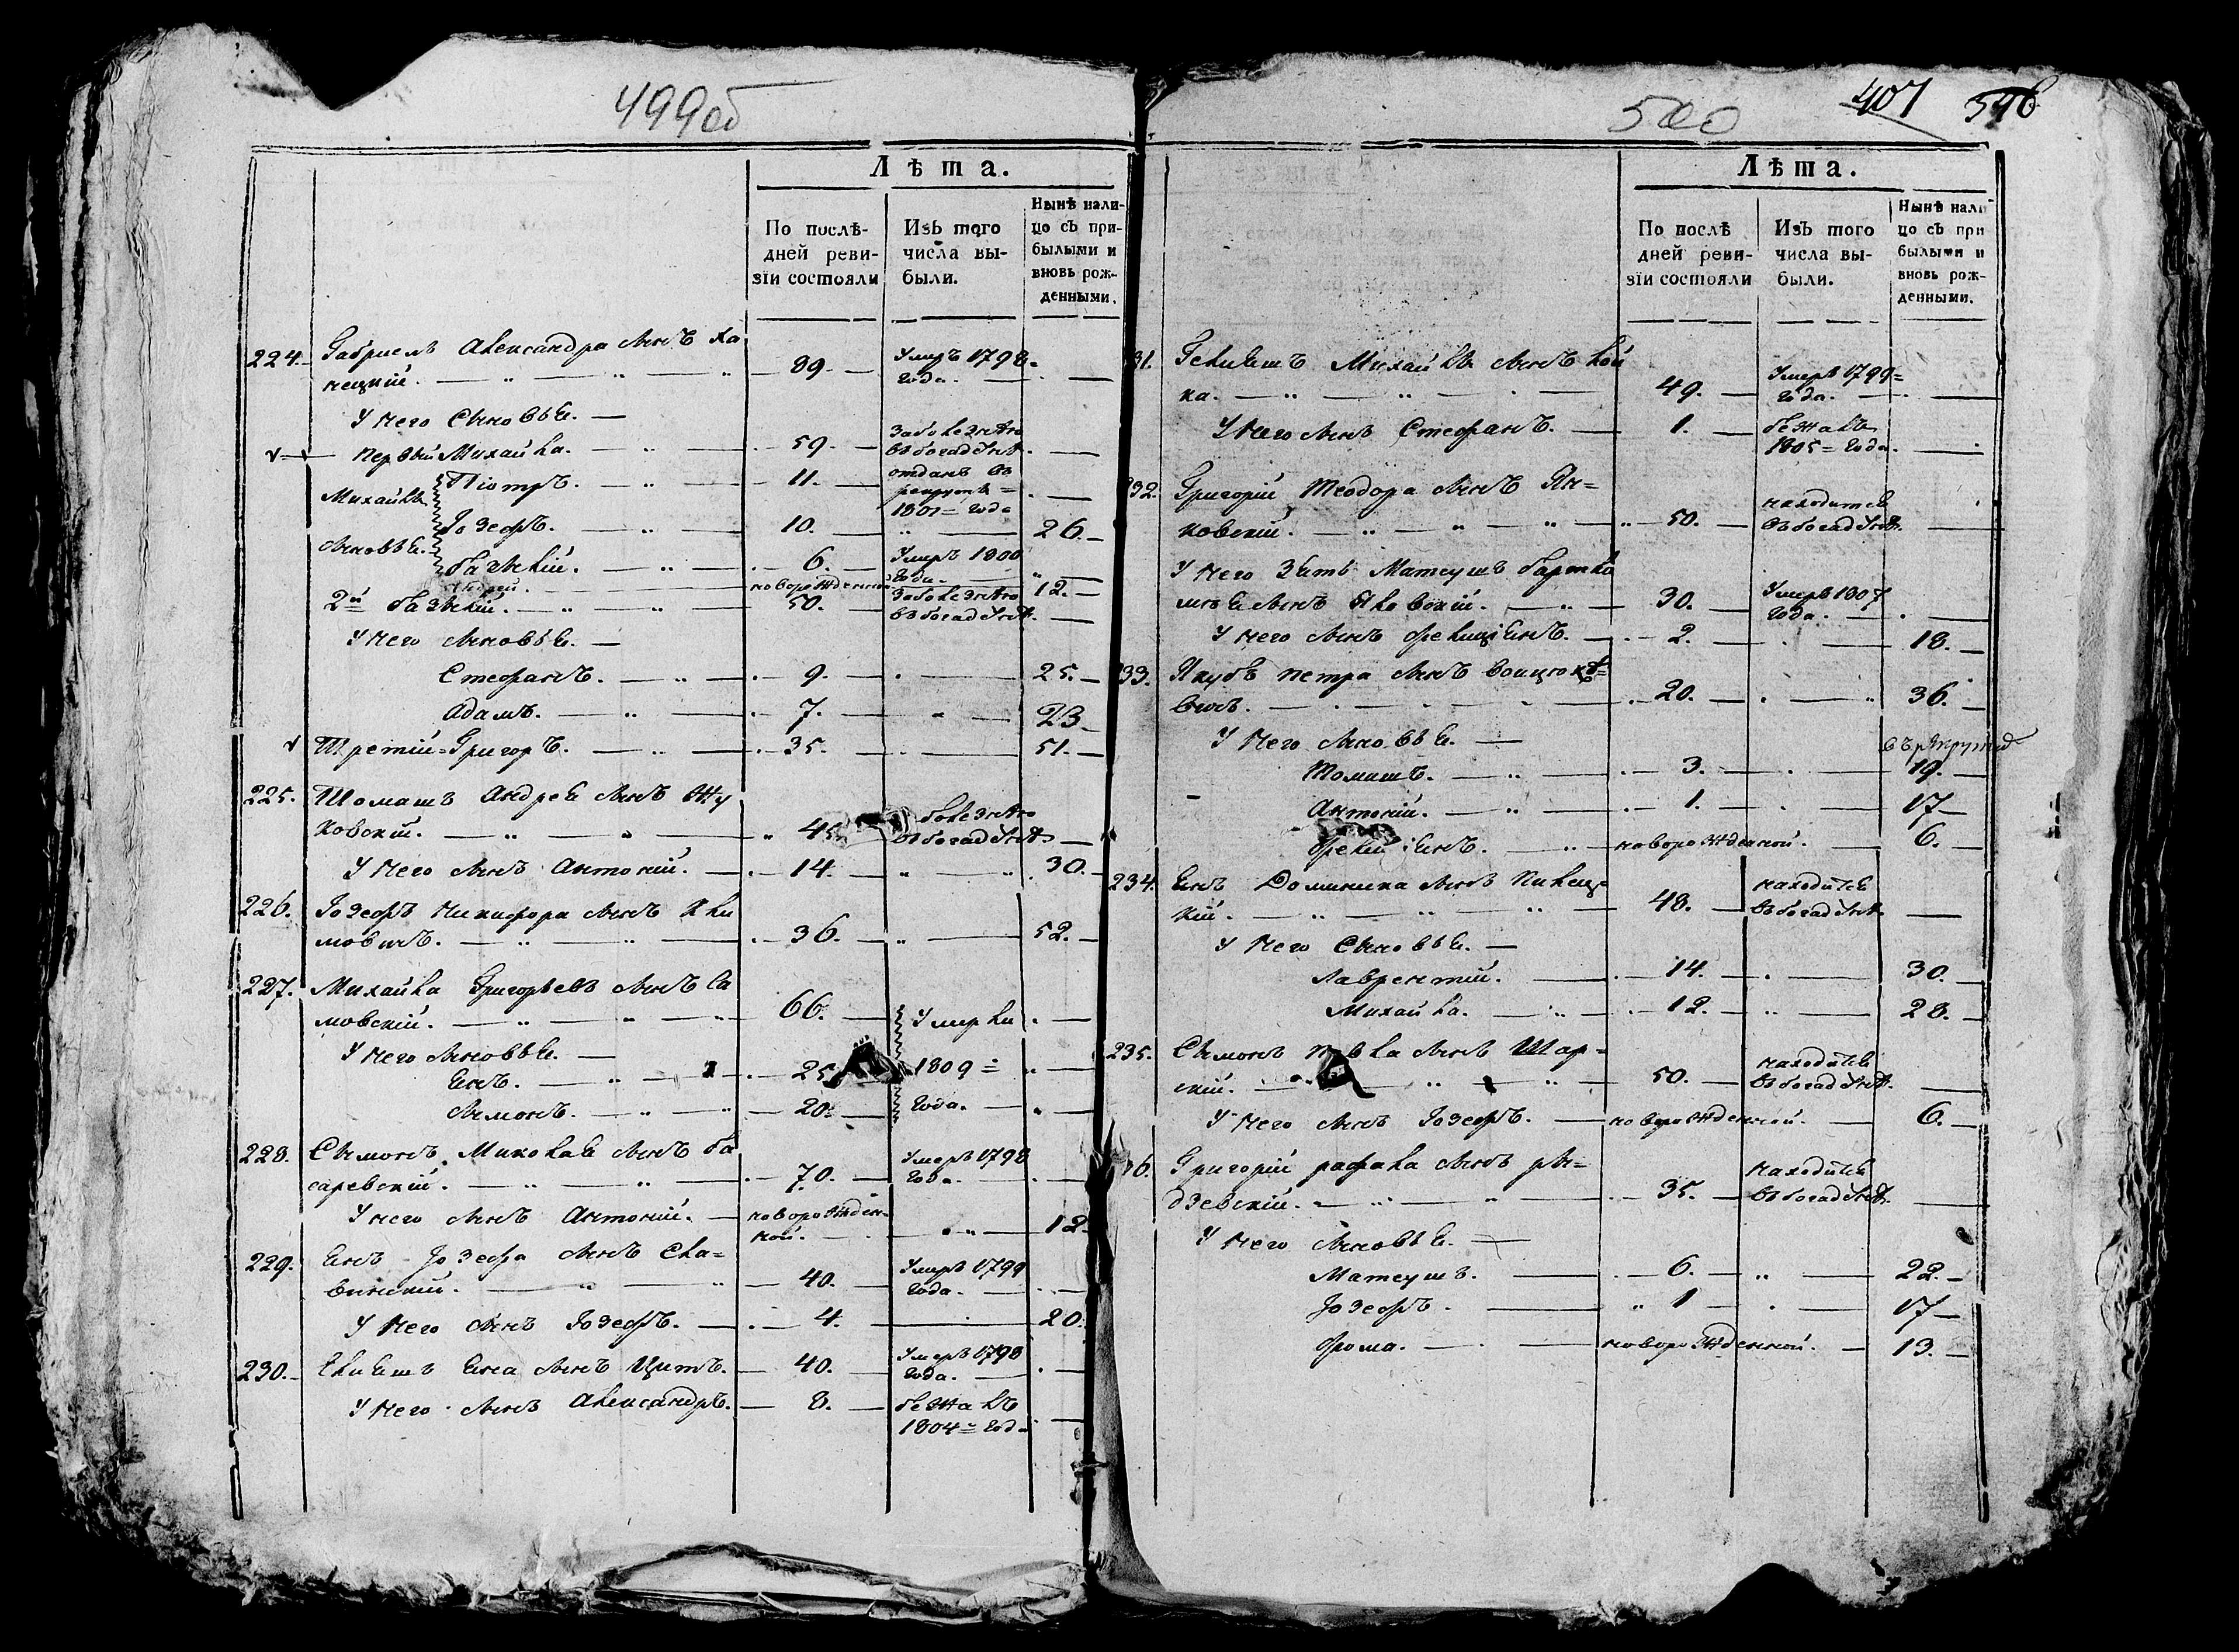 499об
Лѣта.
По послѣ-
дней реви-
зіи состояли
Изъ того
числа вы-
были.
Нынѣ нали-
цо съ при-
былыми и
вновь рож-
денными.
224. Габріель Александра сынъ Ка
нецкій. 89. Умръ 1798 года.
У него Сыновья.
Первый Михайла. 59. За болезнію въ богадѣлнѣ.
Михайлы сыновья.
Піотръ. 11. отданъ въ рекруты 1801 = года
Іозефъ. 10. 26.
Базылій. 6. Умръ 1800 года.
новорожденной 12.
2й Базылій. 50. За болезнію въ богадѣлнѣ.
У него сыновья.
Стефанъ. 9. 25.
Адамъ. 7. 23
Третій = Григоръ. 35. 51.
225. Томашъ Андрея сынъ Жу
ковскій. 45 болезнію въ богадѣлнѣ
У него сынъ Антоній. 14. 30.
226. Іозефъ Никифора сынъ Кли
мовичъ. 36. 52.
227. Михайла Григорьевъ сынъ Са
мовскій. 66. Умерли
У него сыновья.
Янъ. 25 1809 =
Сымонъ. 20. года.
228. Сымонъ Миколая сынъ Ба
саревскій. 70. Умеръ 1798 года.
У него сынъ Антоній. новорожден-
ной. 12.
229. Янъ Іозефа сынъ Сла-
винскій. 40. Умеръ 1799 года.
У него сынъ Іозефъ. 4. 20.
230. Яна сынъ Цитъ. 40. Умеръ 1798 года.
У него сынъ Александръ. 8. бежалъ
1804 = года
500
407 546
Лѣта.
По послѣ
дней реви-
зіи состояли
Изъ того
числа вы-
были.
Нынѣ нали
цо съ при
былыми и
вновь рож-
денными.
31. Михайлы сынъ Кой
ка. 49. Умеръ 1799 = года.
У него сынъ Стефанъ. 1. бежалъ
1805 = года.
232. Григорій Теодора сынъ Ян-
ковскій. 50. находится въ богадѣлнѣ.
У него Зять Матеушъ Бартло
мея сынъ Яковскій. 30. Умеръ 1807 года.
У него сынъ Фелиціянъ. 2. 18.
33. Якубъ Петра сынъ
вичъ. 20. 36.
У него сыновья.
въ рекрутѣ
Томашъ. 3. 19.
Антоній. 1. 17
новорожденной. 6.
234. Янъ Доминика сынъ Пилец-
кій. 48. находится въ богадѣлнѣ.
У него Сыновья.
Лаврентій. 14. 30.
Михайла. 12. 28.
235. Сымонъ Павла сынъ Шар-
скій. 50. находится въ богадѣлнѣ.
У него сынъ Іозефъ. новорожденной. 6.
36. Григорій Рафала сынъ Ры-
дзевскій. 35. находится въ богадѣлнѣ.
У него сыновья.
Матеушъ. 6. 22.
Іозефъ. 1 17
Фома. новорожденной. 13.